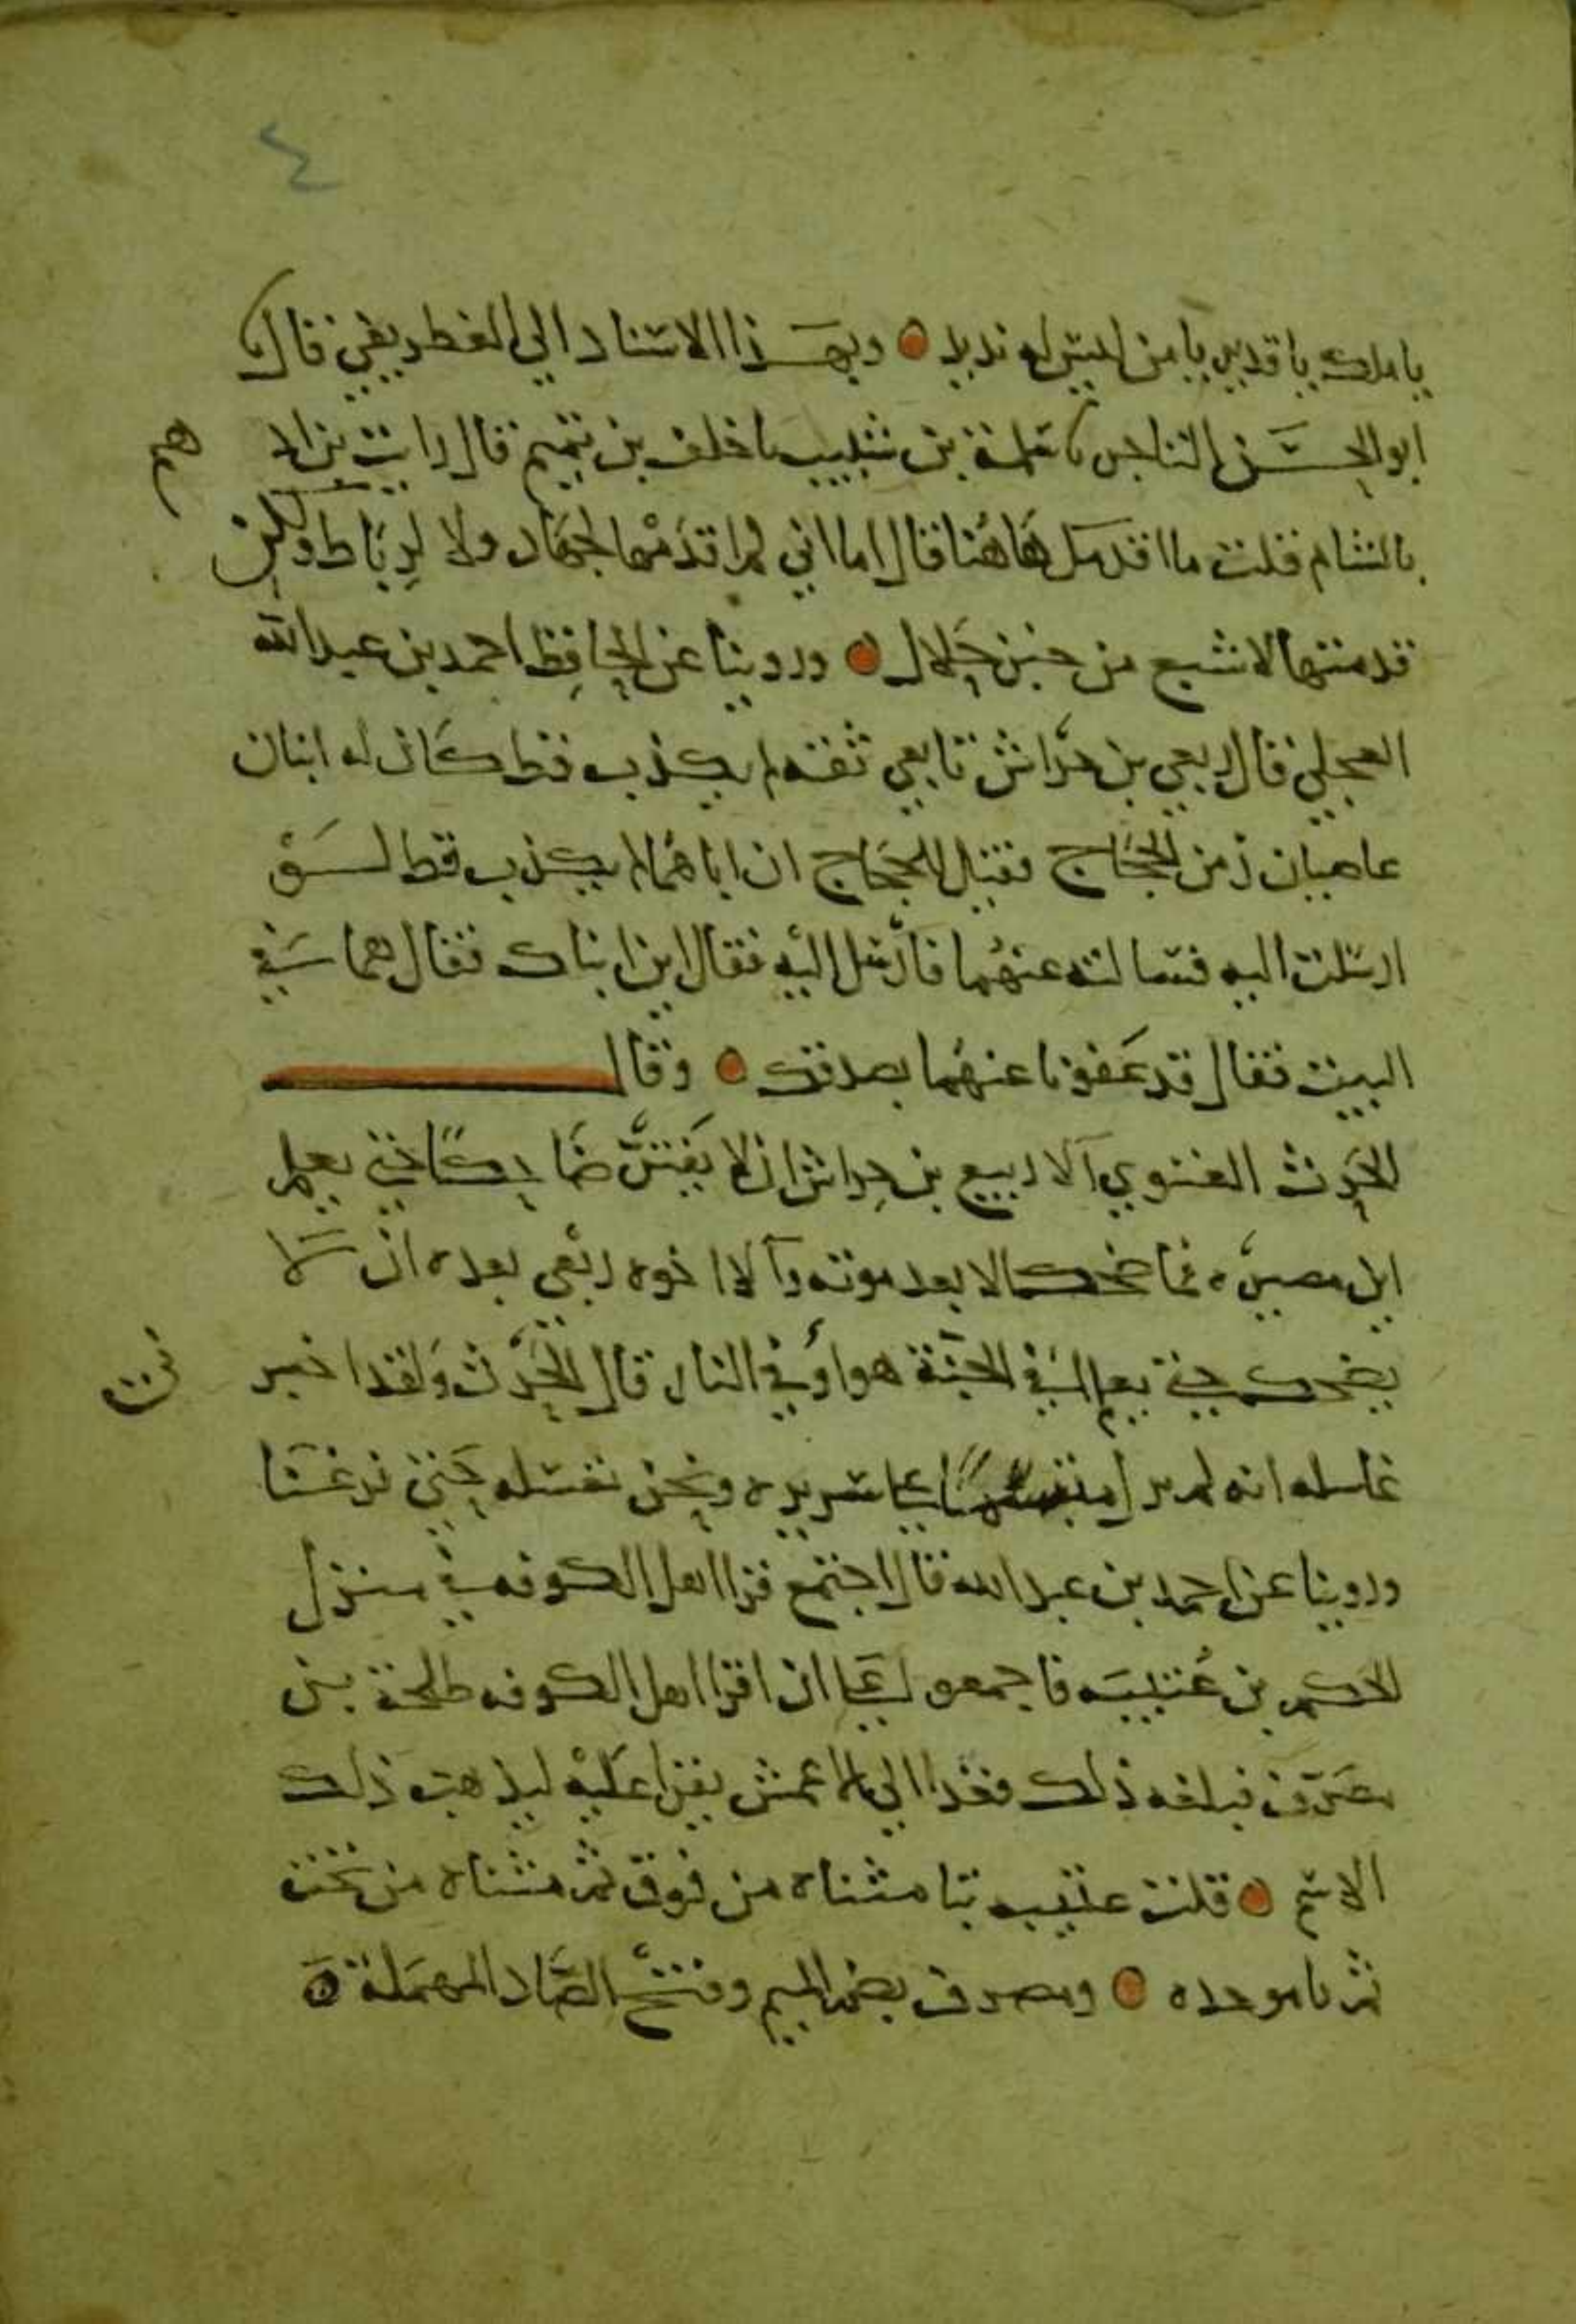 ٤
يا ملك يا قديم يا من ليس له نديد ○ وبهذا الاسناد الي الغطريفي قال نا
ابو الحسن التاجر نا علمة بن شبيب نا خلف بن تميم قال رايت بن اد
هم
بالشام فقلت ما اقدمك هاهنا قال اما اني لم اقدمها لجهاد ولا لرباط ولكن
قدمتها لاشبع من خبز حلال ○ وروينا عن الحافظ احمد بن عبد الله
العجلي قال ربعي بن حراش تابعي ثقة لم يكذب قط كان له ابنان
عاصيان زمن الحجاج فقيل للحجاج ان اباهما لم يكذب قط لسو
ارسلت اليه فسالته عنهما فارسل اليه فقال اين ابناك فقال هما في
البيت فقال قد عفونا عنهما بصدقك ○ وقال
الحرث الغنوي آلا ربيع بن حراش ان لا يفتر ضاحكا حتى يعلم
اين مصيره فما ضحك الا بعد موته وآلا اخوه ربعي بعده ان لا
يضحك حتى يعلم افي الجنة هو او في النار قال الحرث ولقد اخبرني
غاسله انه لم يزل متبسما على سريره ونحن نغسله حتى فرغنا
وروينا عن احمد بن عبد الله قال اجتمع قرا اهل الكوفه في منزل
الحكم بن عتيبه فاجمعوا على ان اقرا اهل الكوفه طلحة بن
مصرف فبلغه ذلك فغدا الي الاعمش يقرا عليه ليذهب ذلك
الاسم ○ قلت عتيبه بتا مثناه من فوق ثم مثناه من تحت
ثم با موحده ○ ومصرف بضم الميم وفتح الصاد المهملة ○